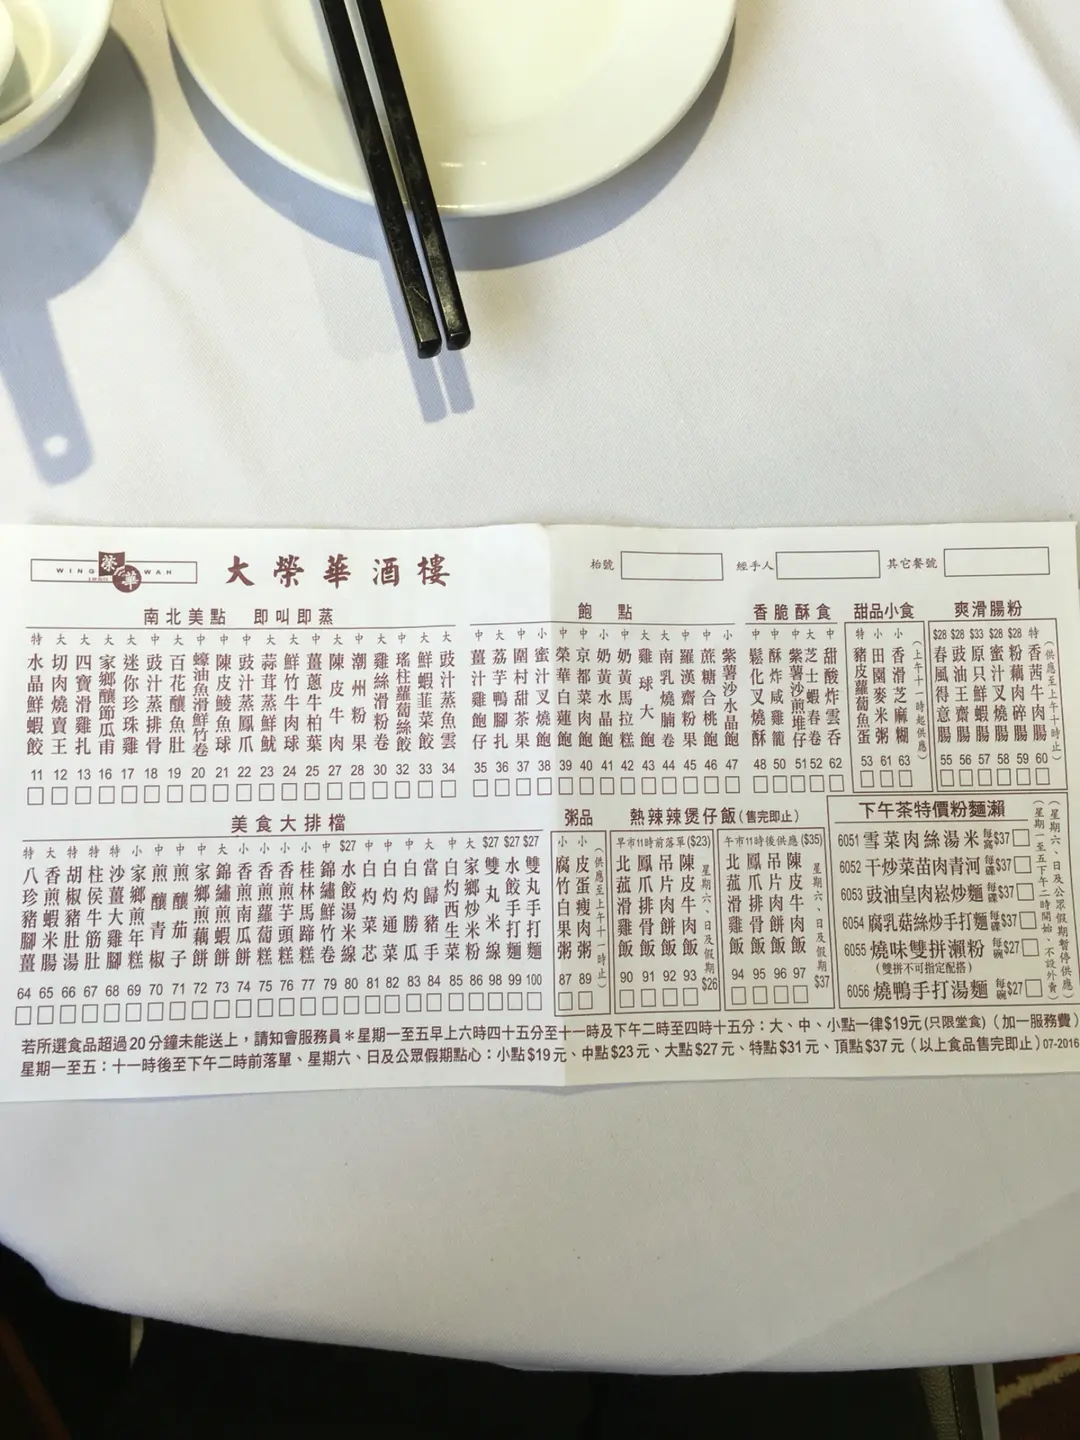 WING WAH
榮華
1950
大榮華酒樓
枱號
經手人
其它餐號
南北美點 即叫即蒸
特 水晶鮮蝦餃 11
大 切肉燒賣王 12
大 四寶滑雞扎 13
大 家鄉釀節瓜甫 16
大 迷你珍珠雞 17
中 豉汁蒸排骨 18
大 百花釀魚肚 19
中 蠔油魚滑鮮竹卷 20
中 陳皮鯪魚球 21
大 豉汁蒸鳳爪 22
大 蒜茸蒸鮮魷 23
大 鮮竹牛肉球 24
中 薑蔥牛柏葉 25
大 陳皮牛肉 27
中 潮州粉果 28
大 雞絲滑粉卷 30
中 瑤柱蘿蔔絲餃 32
大 鮮蝦韮菜餃 33
大 豉汁蒸魚雲 34
飽點
中 薑汁雞飽仔 35
大 荔芋鴨腳扎 36
中 圍村甜茶果 37
小 蜜汁叉燒飽 38
中 榮華白蓮飽 39
中 京都菜肉飽 40
小 奶黃水晶飽 41
中 奶黃馬拉糕 42
大 雞球大飽 43
大 南乳燒腩卷 44
中 羅漢齋粉果 45
中 蔗糖合桃飽 46
小 紫薯沙水晶飽 47
香脆酥食
中 鬆化叉燒酥 48
中 酥炸咸雞籠 50
中 紫薯沙煎堆仔 51
大 芝士蝦春卷 52
中 甜酸炸雲吞 62
甜品小食
特 豬皮蘿蔔魚蛋 53
小 田園麥米粥 61
小 香滑芝麻糊 63
（上午十一時起供應）
爽滑腸粉
$28 春風得意腸 55
$28 豉油王齋腸 56
$33 原只鮮蝦腸 57
$28 蜜汁叉燒腸 58
$28 粉藕肉碎腸 59
特 香茜牛肉腸 60
（供應至上午十時止）
美食大排檔
特 八珍豬腳薑 64
大 香煎蝦米腸 65
特 胡椒豬肚湯 66
特 柱侯牛筋肚 67
大 沙薑大雞腳 68
小 家鄉煎年糕 69
中 煎釀青椒 70
中 煎釀茄子 71
中 家鄉煎藕餅 72
大 錦繡煎蝦餅 73
小 香煎南瓜餅 74
小 香煎蘿蔔糕 75
小 香煎芋頭糕 76
小 桂林馬蹄糕 77
中 錦繡鮮竹卷 79
$27 水餃湯米線 80
中 白灼菜芯 81
中 白灼通菜 82
中 白灼勝瓜 83
大 當歸豬手 84
中 白灼西生菜 85
大 家鄉炒米粉 86
$27 雙丸米線 98
$27 水餃手打麵 99
$27 雙丸手打麵 100
粥品
小 腐竹白果粥 87
小 皮蛋瘦肉粥 89
（供應至上午十一時止）
熱辣辣煲仔飯(售完即止)
早市11時前落單($23)
北菰滑雞飯 90
鳳爪排骨飯 91
吊片肉餅飯 92
陳皮牛肉飯 93
星期六、日及假期$26
午市11時後供應($35)
北菰滑雞飯 94
鳳爪排骨飯 95
吊片肉餅飯 96
陳皮牛肉飯 97
星期六、日及假期$37
下午茶特價粉麵瀨
6051 雪菜肉絲湯米 每窩$37
6052 干炒菜苗肉青河 每碟$37
6053 豉油皇肉崧炒麵 每碟$37
6054 腐乳菇絲炒手打麵 每碟$37
6055 燒味雙拼瀨粉 每碗$27
(雙拼不可指定配搭)
6056 燒鴨手打湯麵 每碗$27
（星期六、日及公眾假期暫停供應）
（星期一至五下午二時開始．不設外賣）
若所選食品超過20分鐘未能送上，請知會服務員＊星期一至五早上六時四十五分至十一時及下午二時至四時十五分：大、中、小點一律$19元(只限堂食)（加一服務費）
星期一至五：十一時後至下午二時前落單、星期六、日及公眾假期點心：小點$19元、中點$23元、大點$27元、特點$31元、頂點$37元（以上食品售完即止）07-2016